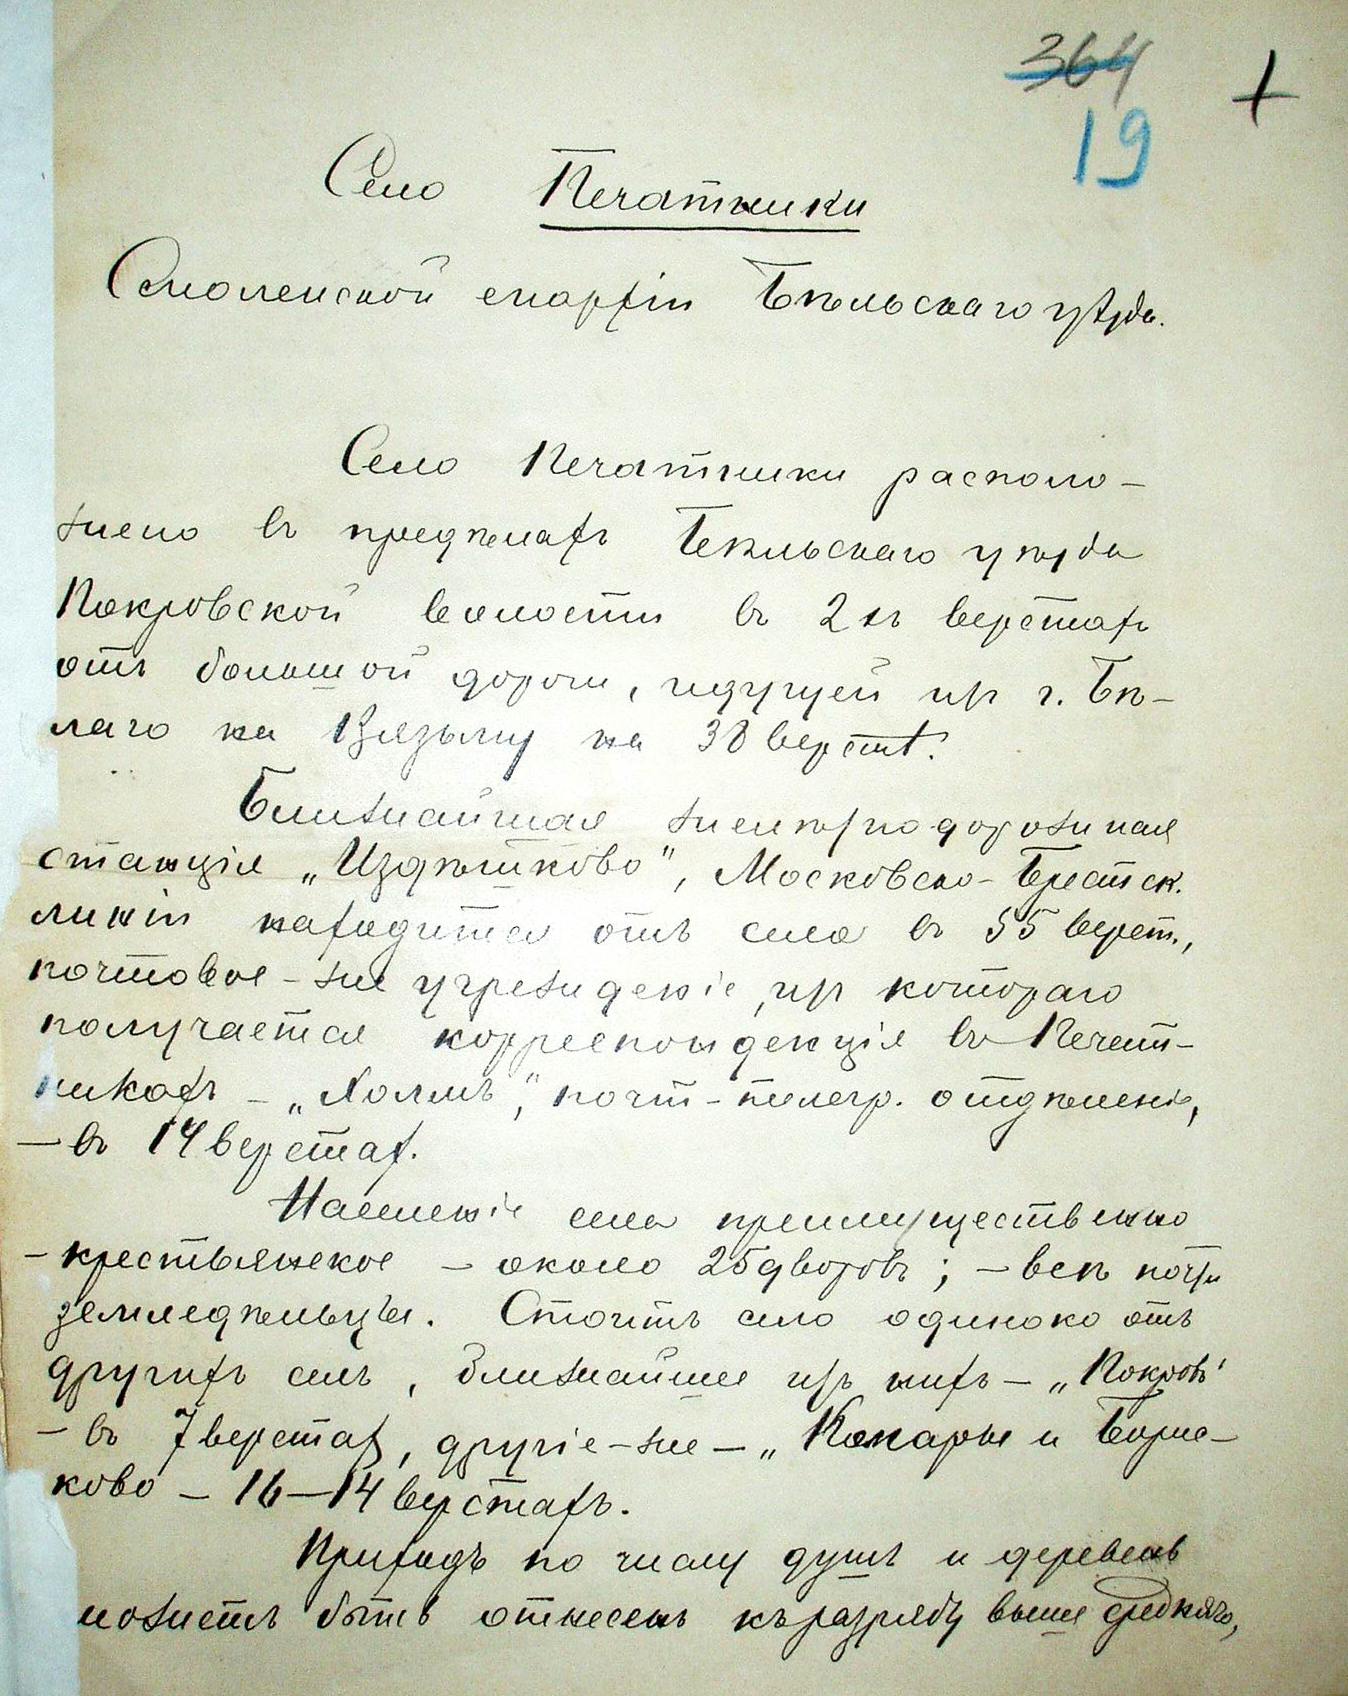 364
19
Село Печатники
Смоленской епархіи Бѣльскаго уѣзда.
Село Печатники располо-
жено въ предѣлахъ Бѣльскаго уѣзда
Покровской волости въ 2хъ верстахъ
отъ большой дороги, идущей изъ г. Бѣ-
лаго на Вязьму на 38 верстѣ.
Ближайшая желѣзнодорожная
станція „Издѣшково", Московско-Брестск.
линіи находится отъ села въ 55 верст.,
почтовое-же учрежденіе, изъ котораго
получается корреспонденція въ Печат-
никахъ – „Холмъ", почт-телегр. отдѣленіе,
– въ 14 верстах.
Населеніе села преимущественно
– крестьянское – около 25 дворовъ; – всѣ почти
земледѣльцы. Стоитъ село одиноко отъ
другихъ селъ, ближайшее изъ нихъ – „Покровъ"
– въ 7 верстах, другіе-же – „Комары и
ково – 16–14 верстахъ.
Приходъ по числу душъ и деревень
можетъ быть отнесенъ къ разряду выше средняго,